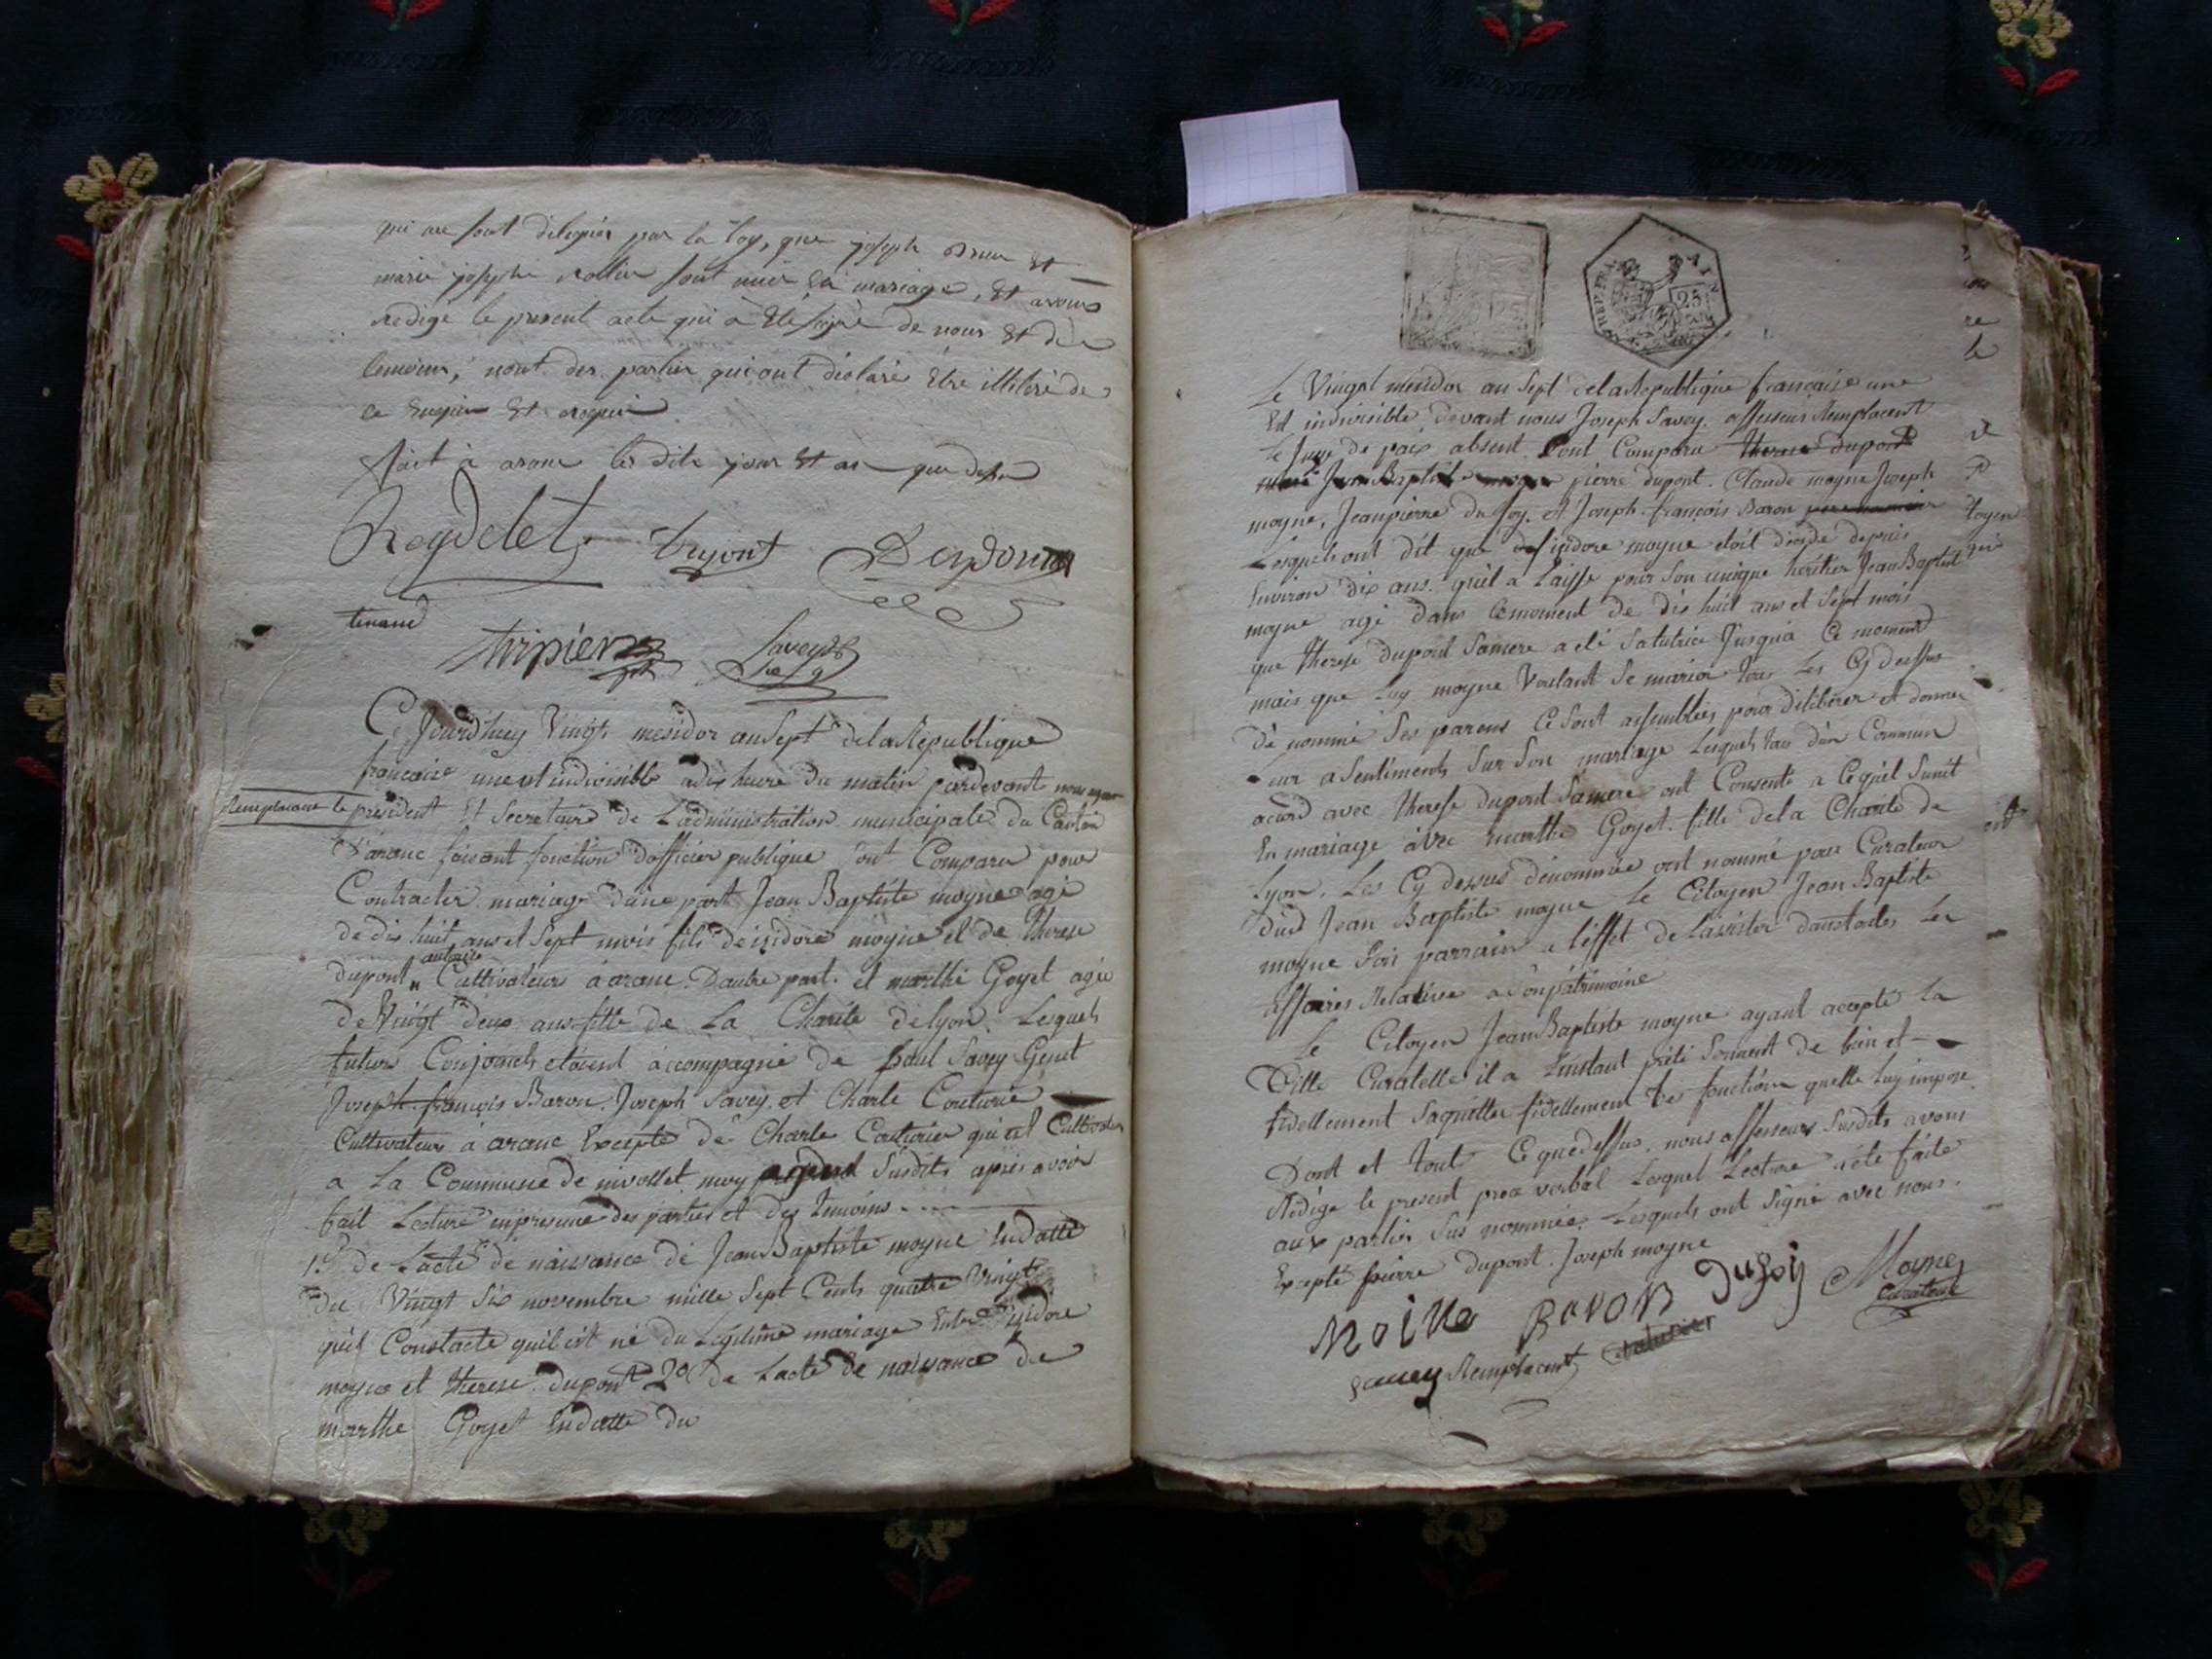 qui me sont délégués par la loy, que joseph Brun Et
marie josephe Rollin sont unis En mariage, Et avons
Redigé le present acte qui à Eté signé de nous Et des
temoins, nont des parties qui ont déclaré Etre illiteré de
ce Enquis Et requis
fait à aranc les dits jour Et an que dessus
Reydelet Dujont
tenand
Savey
Ce Jourdhuy Vingt messidor an Sept de la Republique
francaise une et indivisible a dix heure du matin pardevant nous agent
Remplacant le president Et Secretaire de Ladministration municipale du Canton
D'aranc faisant fonction dofficier publique sont Comparu pour
Contracter mariage dune part Jean Baptiste moyne agé
de dix huit ans et Sept mois fils de isidore moyne et de Therese
dupont Cultivateurs à aranc. Dautre part. et marthe Goyet agée
de Vingt deux ans fille de La Charité de lyon. Lesquels
futurs Conjoints etoient accompagné de paul Savey Genet
Joseph françois Baron. Joseph Savey et Charle Couturié
Cultivateurs à aranc Excepté de Charle Couturier qui est Cultivateur
a La Commune de nivollet moy Susdits après avoir
fait Lecture en presence des parties et des temoins
1.o de Lacte de naissance de Jean Baptiste moyne Endatte
du Vingt Six novembre mille Sept Cents quatre Vingt
qui Constacte quil est né du Legitime mariage Entre isidore
moyne et therese dupont 2o de Lacte de naissance de
marthe Goyet Endatte du
25
Le Vingt messidor an Sept de la Republique française une
Et indivisible, devant nous Joseph Savey. assesseur Remplacent
Le Juge de paix absent. Sont Comparu Therese dupont
Jean Baptiste pierre dupont. Claude moyne Joseph
moyne, Jean pierre Dufoy. et Joseph françois Baron
Lesquels ont dit que isidore moyne etoit décédé depuis
Environ dix ans. quil a Laissé pour Son unique héritier Jean Baptist
moyne agé dans Ce moment de dix huit ans et Sept mois
que therese dupont Samere a eté Satutrice Jusqua Ce moment
mais que Luy moyne Voulant Se marier tous Les Cy dessus
dénommé Ses parens Ce Sont assemblés pour délibérer et donner
leur Sentiments Sur Son mariage Lesquels tous dun Commun
acord avec therese dupont Samere ont Consenti a Cequil Sunit
En mariage avec marthe Goyet. fille dela Charité de
Lyon. Les Cy dessus dénommée ont nommé pour Curateur
dud Jean Baptiste moyne Le Citoyen Jean Baptiste
moyne Son parrain a léffet de Lassister dans toutes Les
affaires Relative a Son patrimoine
Le Citoyen Jean Baptiste moyne ayant accepté La
Ditte Curatelle il a Linstant prêté Serment de bien et
fidellement Saquitter fidellement des fonction quelle Luy impose
Dont et tout Ce que dessus. nous assesseurs Susdits avons
Rédigé le present procé verbal Lesquel Lecture a été faite
aux parties Sus nommées. Lesquels ont Signé avec nous.
Excepté pierre dupont. Joseph moyne
moine Baron Dufoy Moyne
Curateur
Savey Remplacent